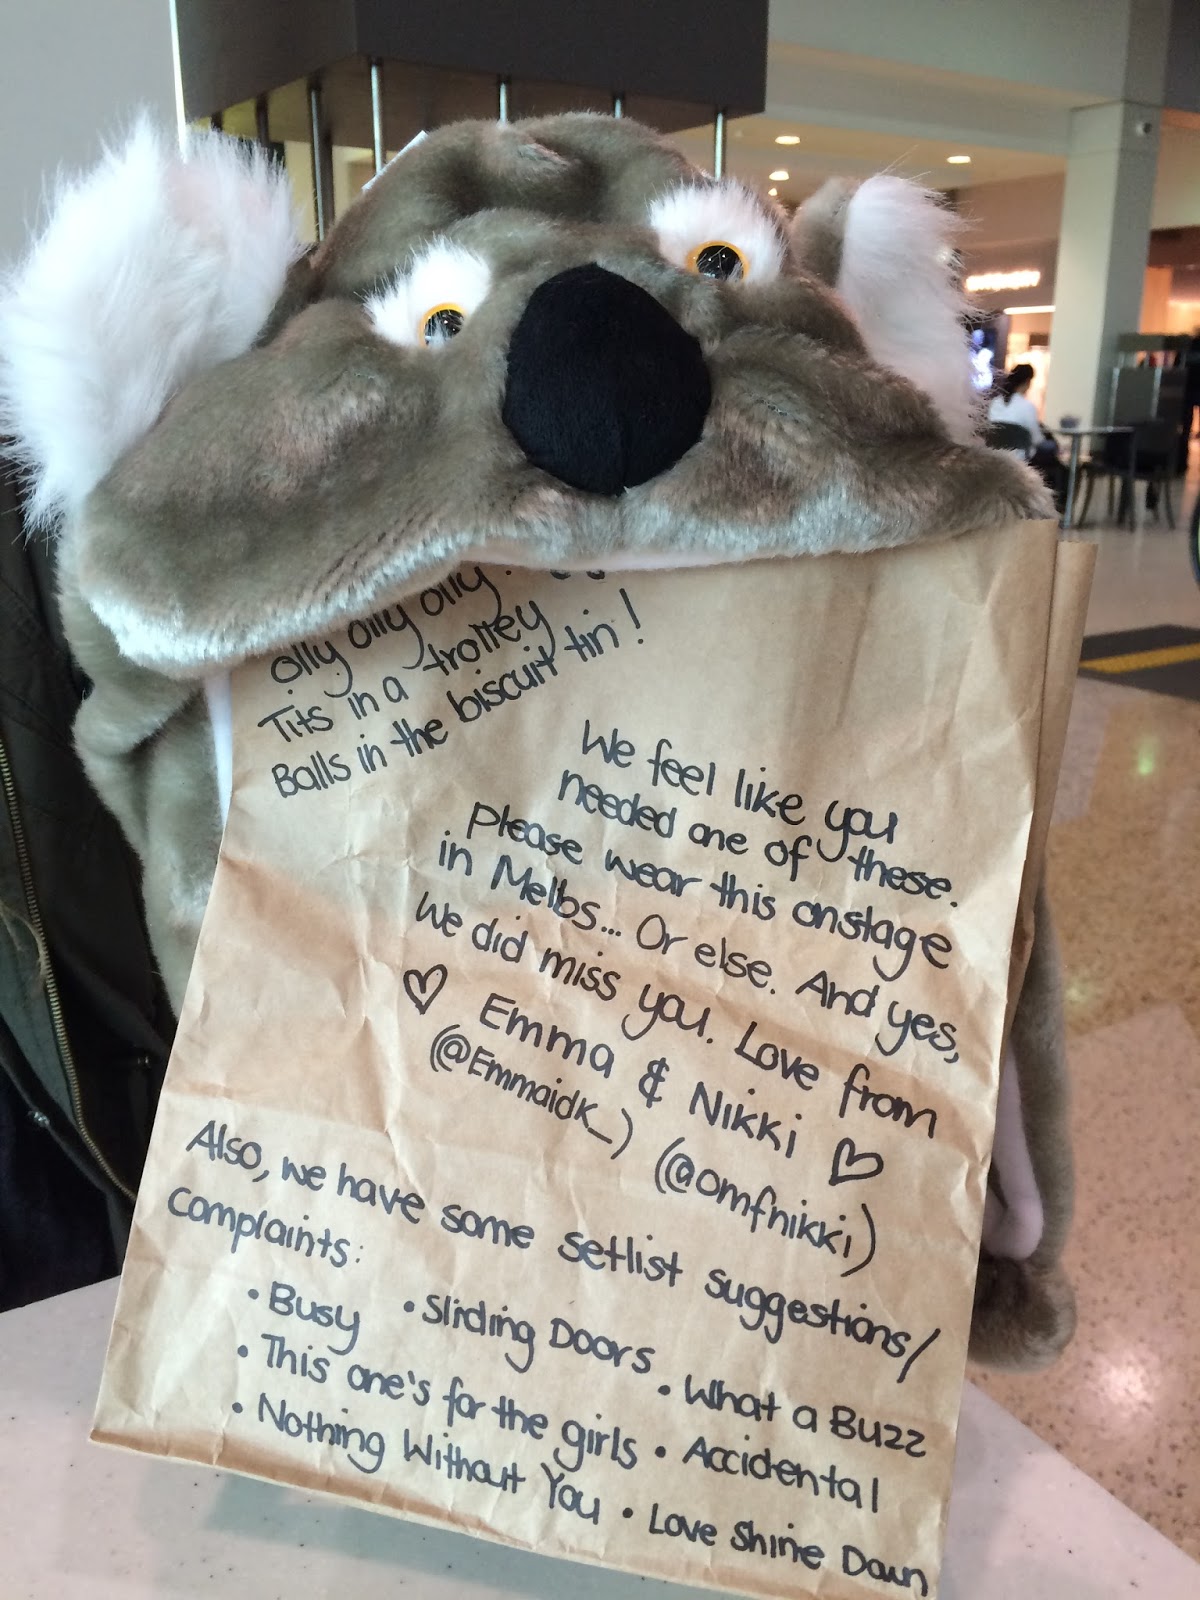 olly olly olly
Tits in a trolley
Balls in the biscuit tin!
We feel like you
needed one of these.
Please wear this onstage
in Melbs... Or else. And yes,
We did miss you. Love from
♡ Emma & Nikki ♡
(@EmmaidK_) (@omfnikki)
Also, we have some setlist suggestions/
complaints:
• Busy • Sliding Doors • What a Buzz
• This one's for the girls • Accidental
• Nothing Without You • Love Shine Down